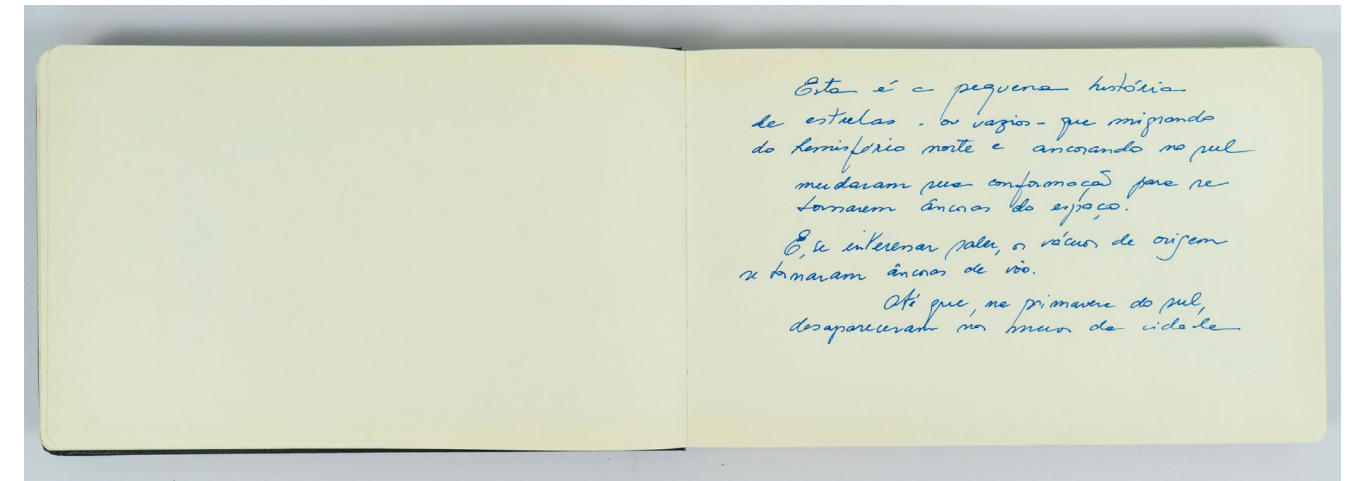 Esta é a pequena história
de estrelas - ou vazios - que migrando
do hemisfério norte e ancorando no sul
mudaram sua conformação para se
tornarem âncoras do espaço.
E, se interessar saber, os vácuos de origem
se tornaram âncoras de vôo.
Até que, na primavera do sul,
desapareceram nos muros da cidade